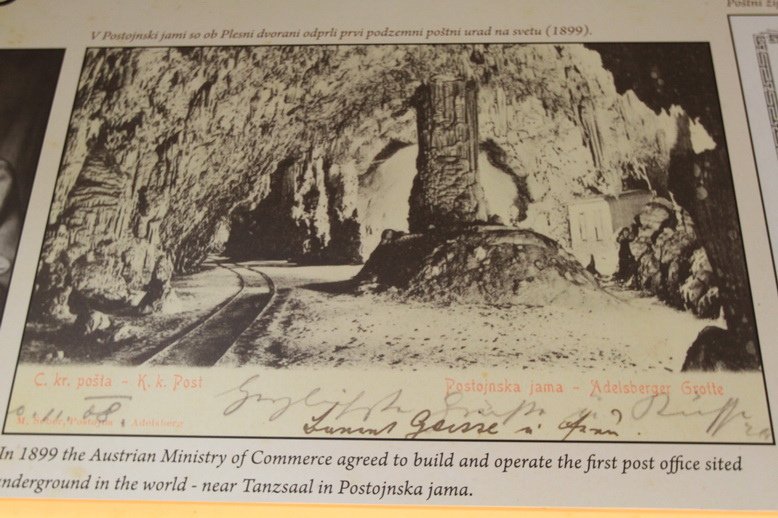 Poštni ži
V Postojnski jami so ob Plesni dvorani odprli prvi podzemni poštni urad na svetu (1899).
C. kr. pošta - K. k. Post
Postojnska jama - Adelsberger Grotte
M. Šeber, Postojna - Adelsberg
In 1899 the Austrian Ministry of Commerce agreed to build and operate the first post office sited
underground in the world - near Tanzsaal in Postojnska jama.